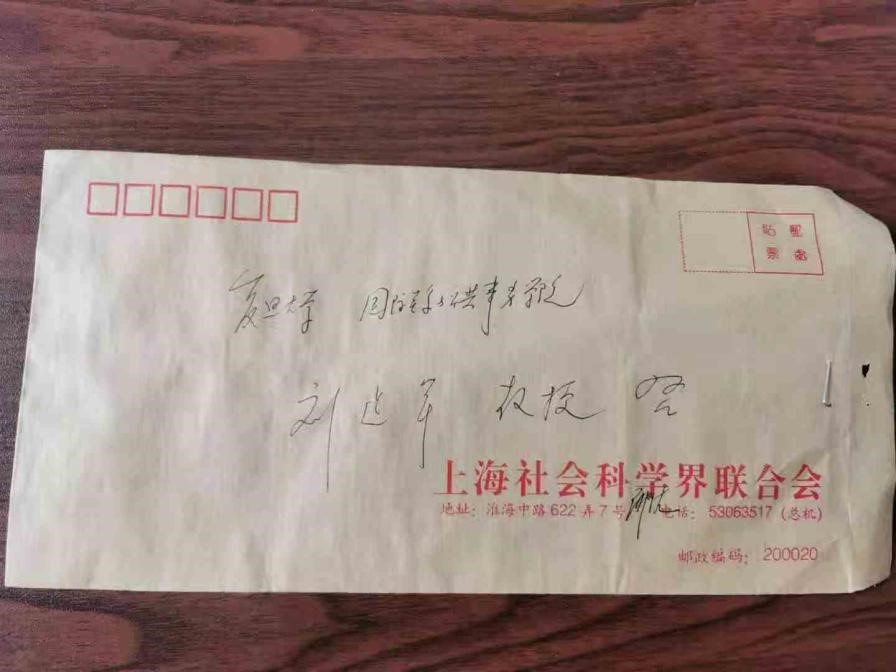 贴 邮
票 处
复旦大学 国际关系与公共事务学院
刘建军 教授 启
上海社会科学界联合会
地址：淮海中路622弄7号 电话：53063517（总机）
邮政编码：200020